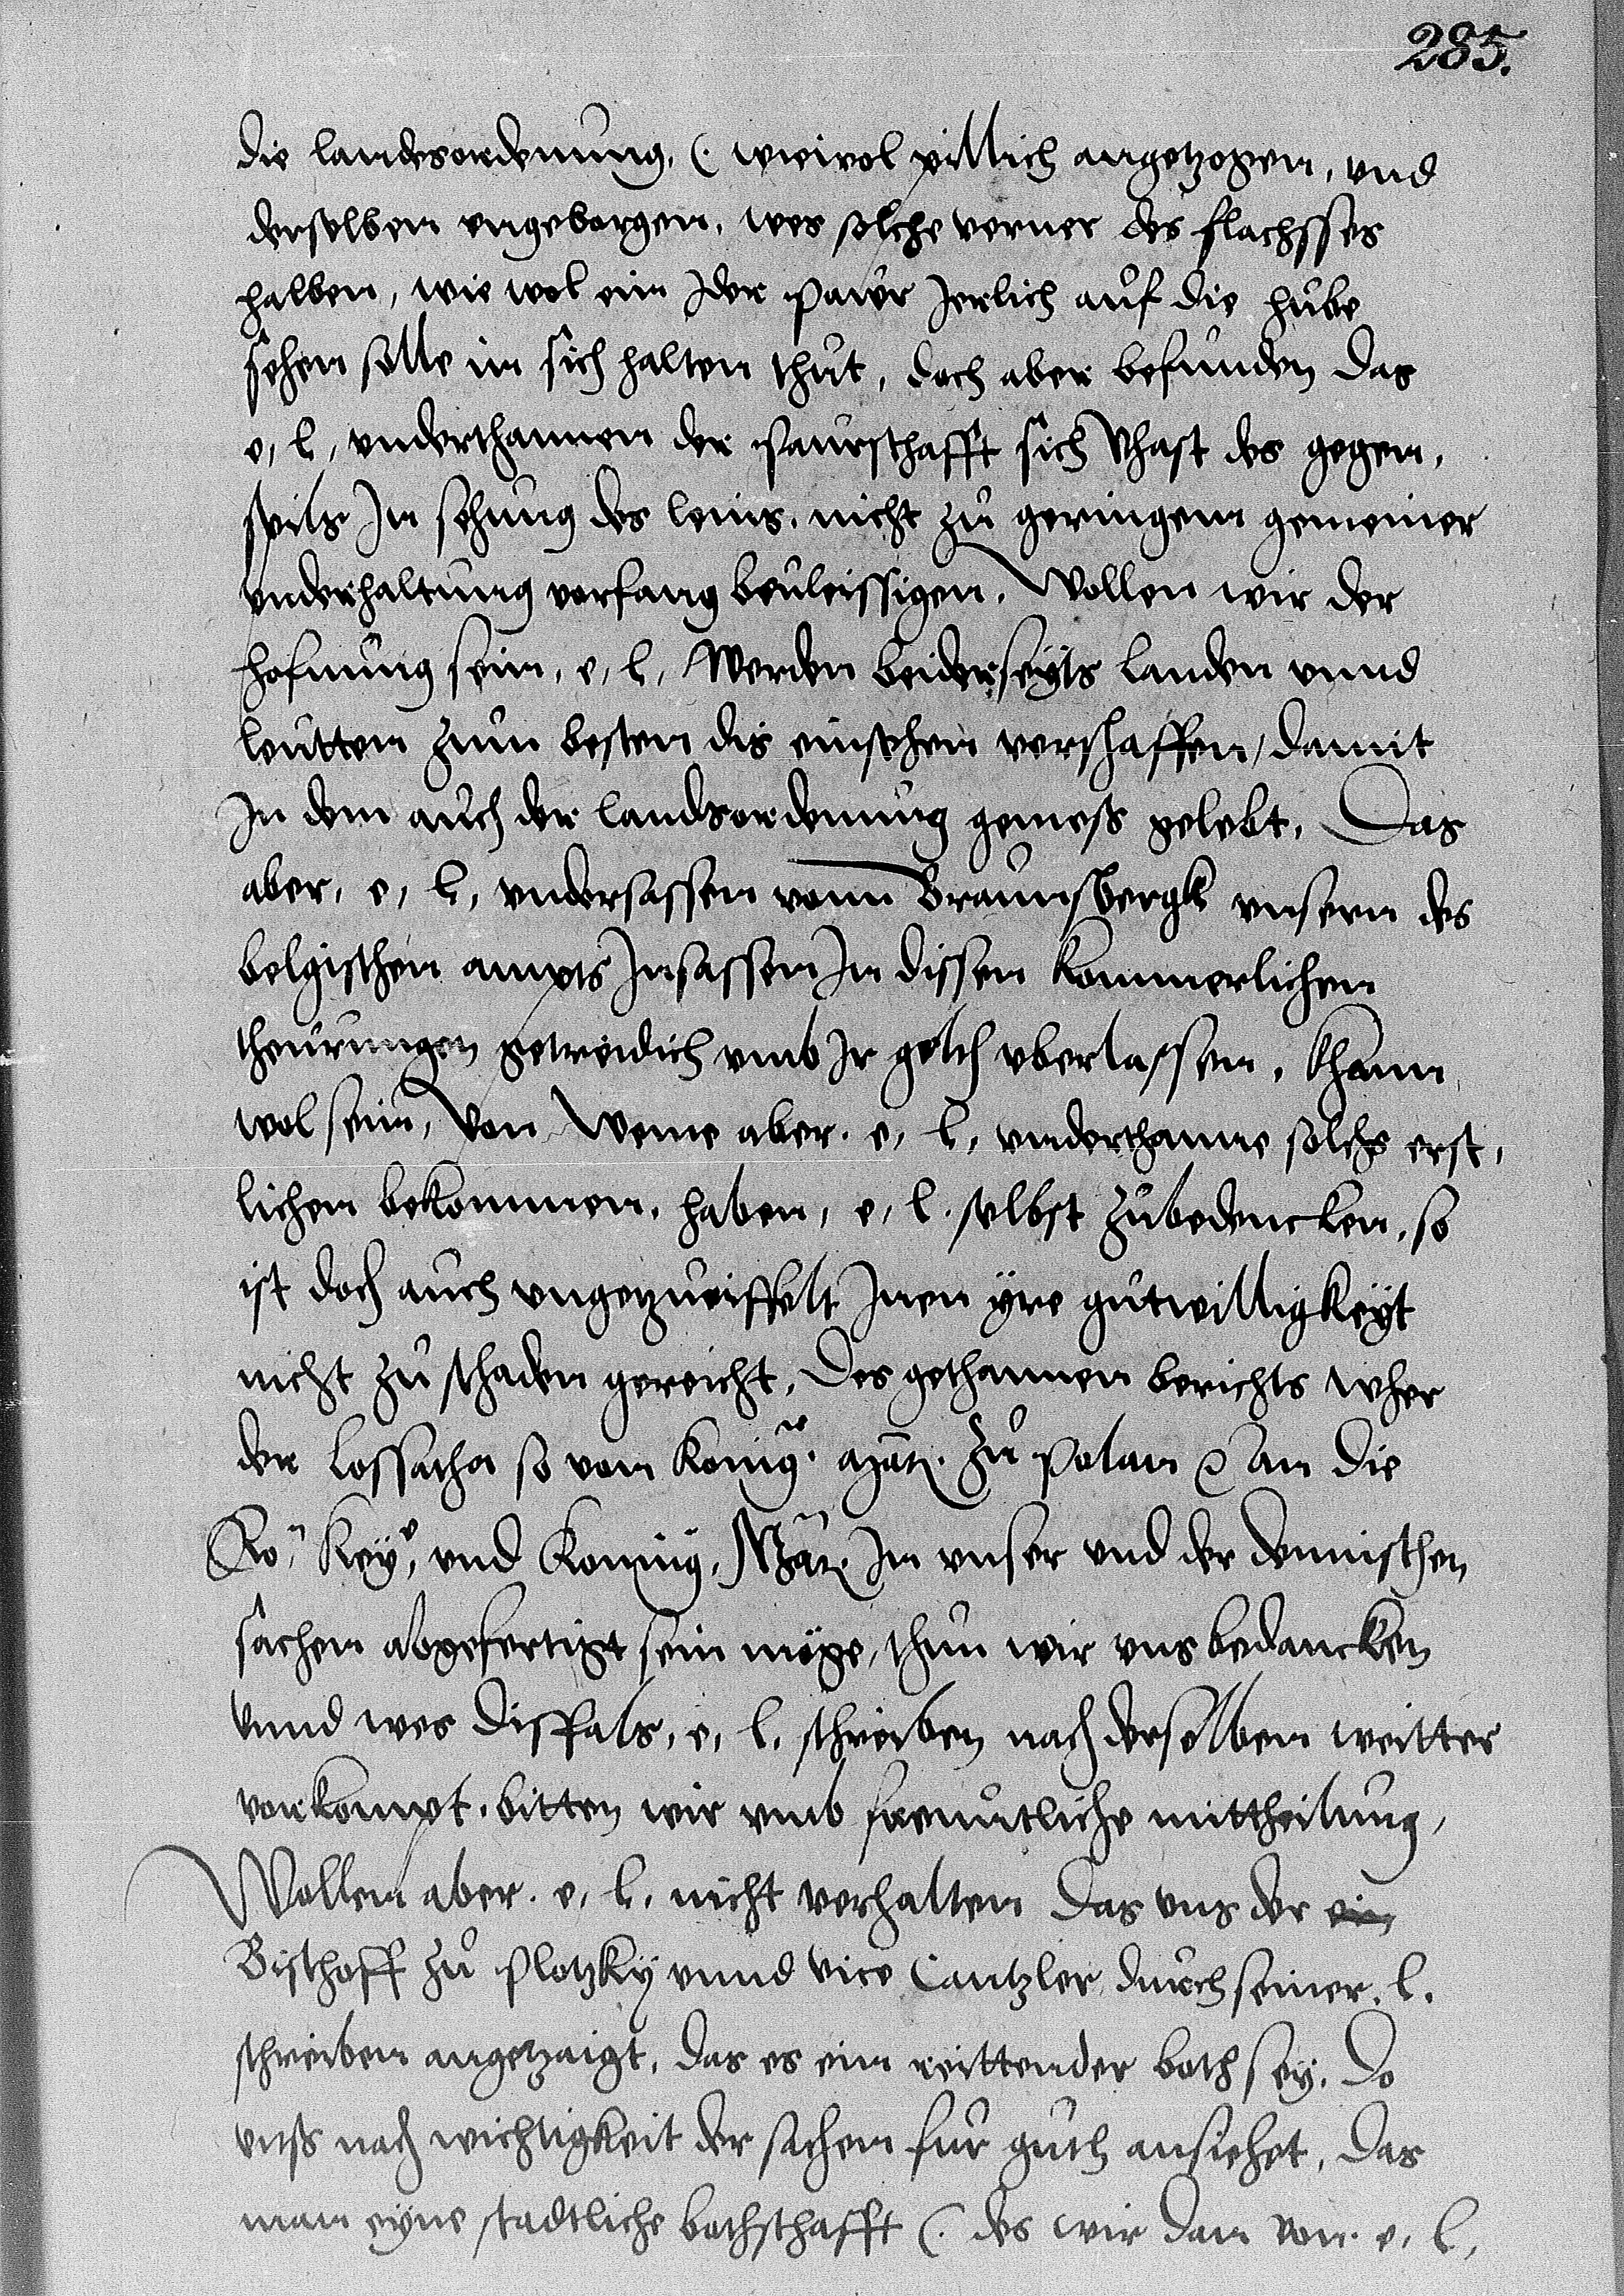 285.
die landesordenung, (. wiewol pillich angetzogen, vnd
derselben vngeborgen, wes solche verner des flachsses
halben, wie wol ein Jder pawr Jerlich auf die hube
sehen solle in sich halten thut, doch aber befunden das
e, l, vnderthannen der paurschafft sich vhast des gegen,
spils In sehung des leins, nicht zu geringem gemeiner
vnderhaltung vorfang bevleissigen, Wollen wir der
hofnung sein, e, l, Werden beiderseyts landen vnnd
leutten zum besten dis einsehen verschaffen, damit
In dem auch der landsordenung gemess gelebt, Das
aber, e, l, vndersassen vonn Braunsbergk vnsern des
belgischen ampts Insassen In dissen kommerlichen
theurungen getreidich vmb Ir gelth vberlassen, khann
wol sein, Von Weme aber. e, l, vnderthanne solchs erst,
lichen bekommen, haben, e, l. selbst zubedencken, so
ist doch auch vngetzweiffelt Inen yre gutwilligkeyt
nicht zu schaden gereicht, Des gethannen berichts vber
der Lossacha so von konig.r Mat. zu polan an die
Ro. Key.r, vnd Konnig, Mat. In vnser vnd der dennischen
sachen abgefertigt sein moge, thun wir vns bedancken
vnnd wes dissfals, e, l. schreiben nach derselben weitter
vorkompt, bitten wir vmb freuntliche mittheilung,
Wollen aber. e, l. nicht verhalten das vns der ein
Bischoff zu plotzky vnnd vice Cantzler durch seiner. l.
schreiben angetzaigt, das es ein reittender both sey. Do
vnss nach wichtigkeit der sachen fur guth ansiehet, das
man eyne stadtliche bothschafft (. des wir dan von. e, l,